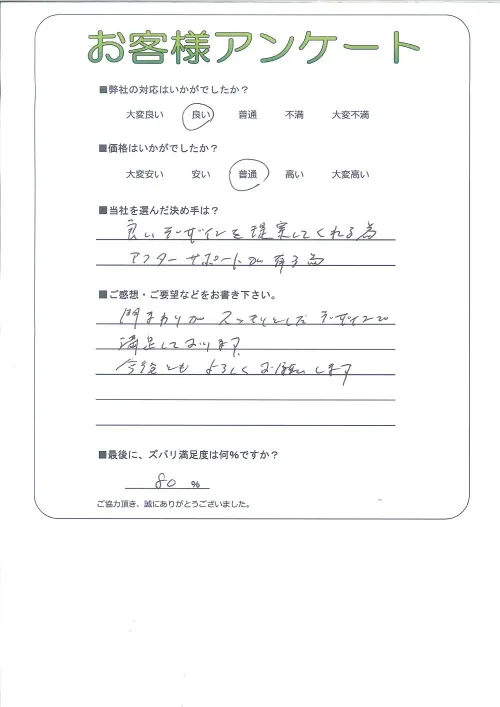 お客様アンケート
■弊社の対応はいかがでしたか？
大変良い 良い 普通 不満 大変不満
■価格はいかがでしたか？
大変安い 安い 普通 高い 大変高い
■当社を選んだ決め手は？
良いデザインを提案してくれる為
アフターサポートが有る為
■ご感想・ご要望などをお書き下さい。
門まわりが スッキリとしたデザインで
満足しております。
今後とも よろしくお願いします
■最後に、ズバリ満足度は何%ですか？
80 %
ご協力頂き、誠にありがとうございました。